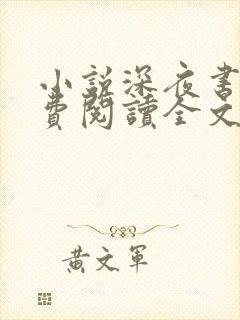 小說深夜書
費閱讀全文
黃文軍